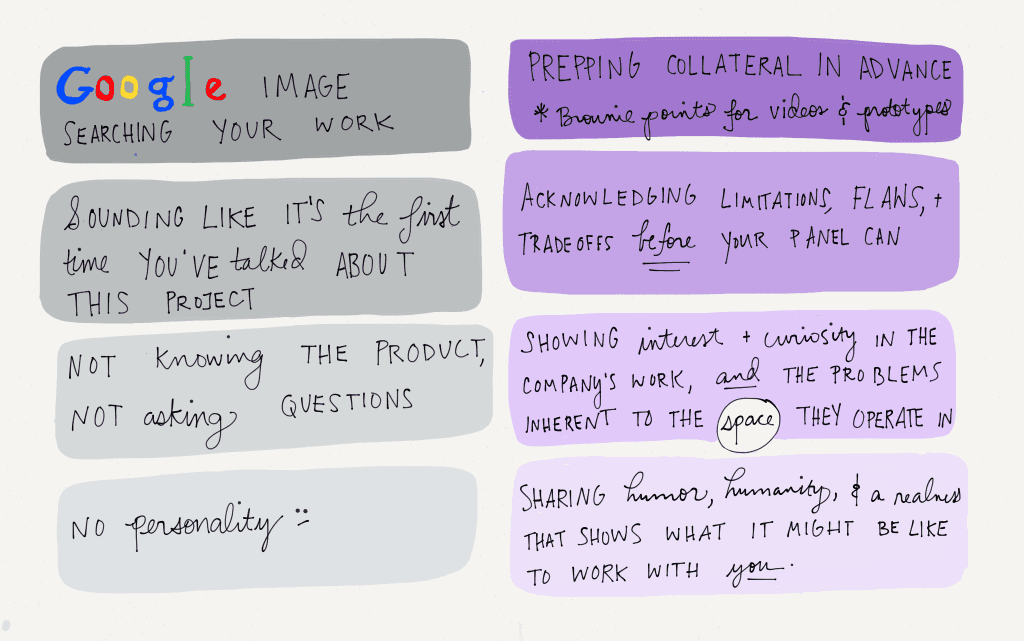 Google IMAGE
SEARCHING YOUR WORK
SOUNDING LIKE IT'S the first
time YOU'VE talked ABOUT
THIS PROJECT
NOT knowing THE PRODUCT,
NOT asking QUESTIONS
NO personality :-
PREPPING COLLATERAL IN ADVANCE
* Brownie points for videos & prototypes
ACKNOWLEDGING LIMITATIONS, FLAWS, +
TRADEOFFS before YOUR PANEL CAN
SHOWING interest + curiosity IN THE
COMPANY'S WORK, and THE PROBLEMS
INHERENT TO THE space THEY OPERATE IN
SHARING humor, humanity, & a realness
THAT SHOWS WHAT IT MIGHT BE LIKE
TO WORK WITH you.